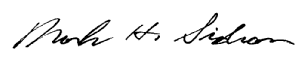 Mark H. Sidran